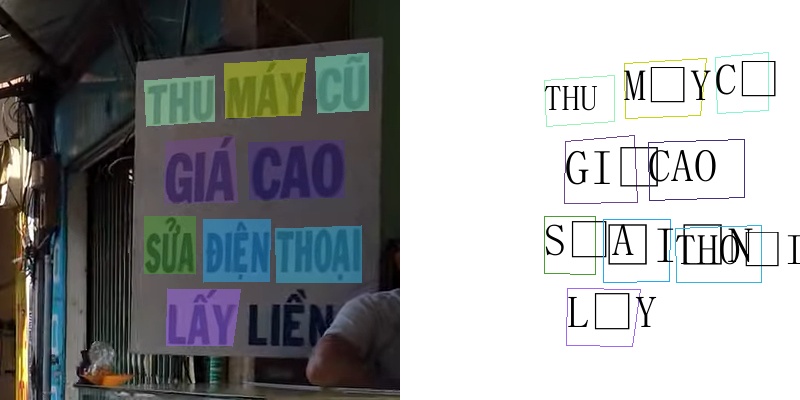 THU MÁY CŨ
GIÁ CAO
SỬA ĐIỆN THOẠI
LẤY LIỀN
THU MYC
GI CAO
S A I THO N I
L Y